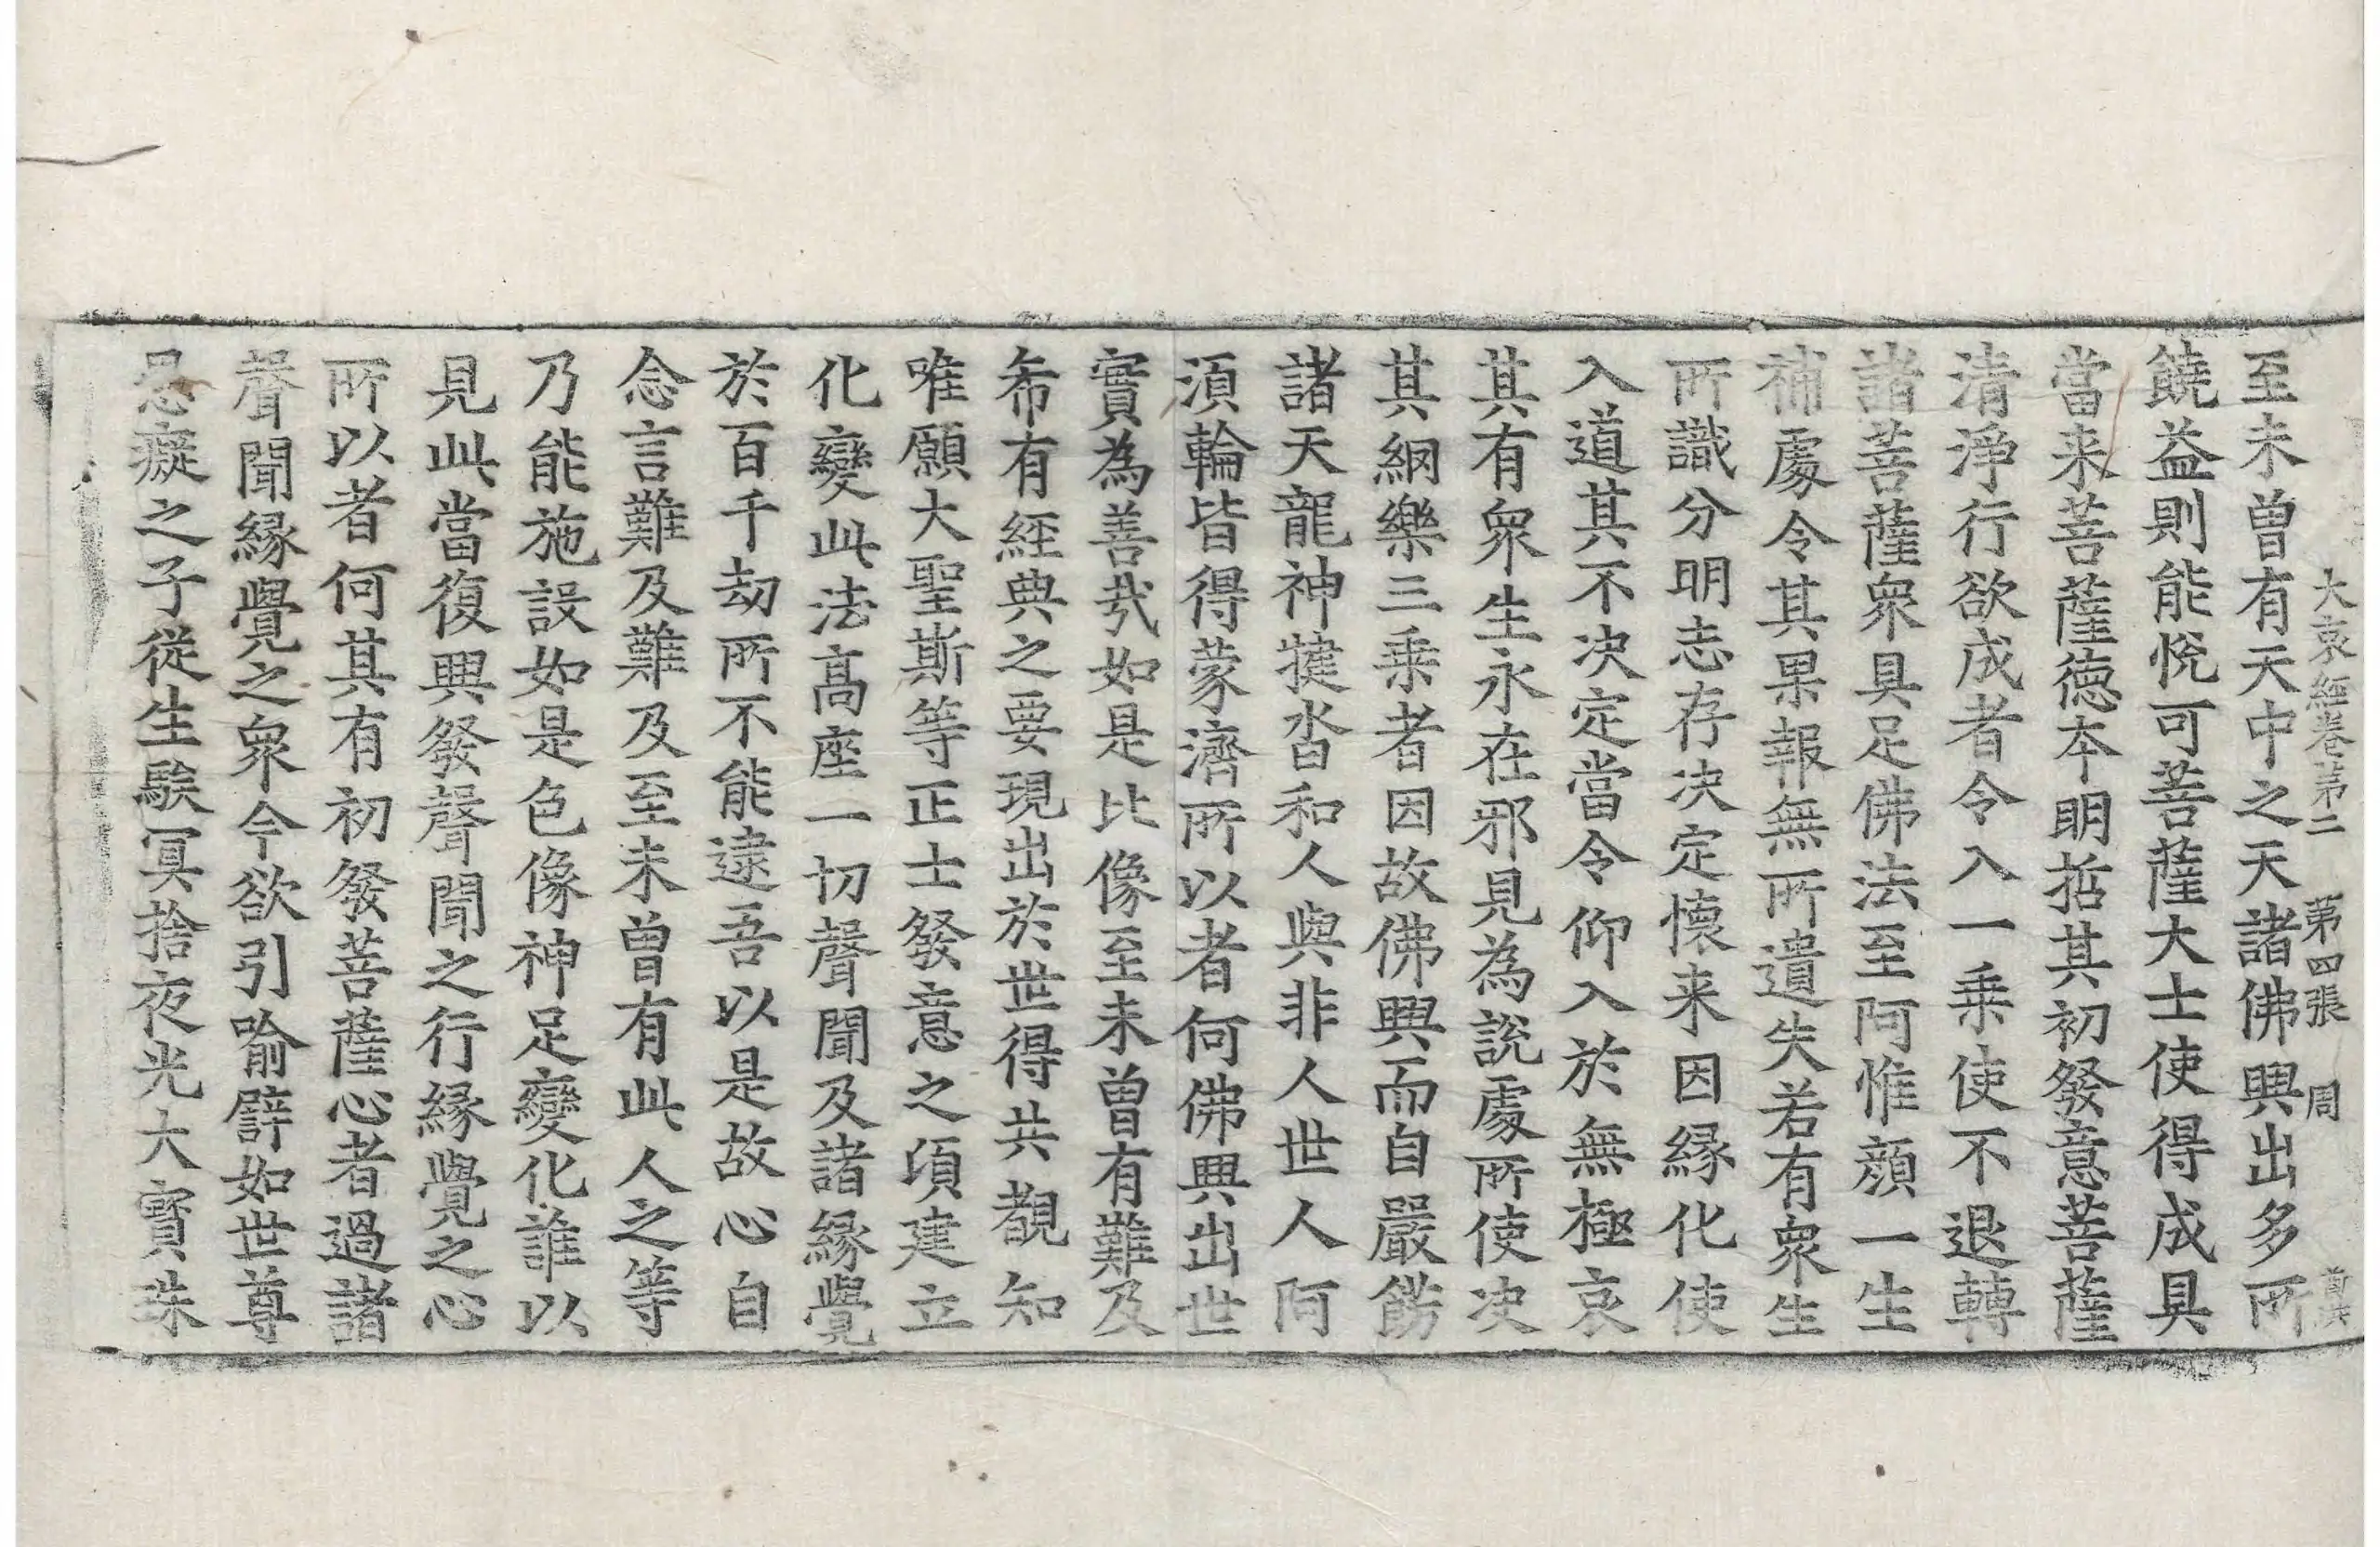 大哀經卷第二 第四張 周
至未曽有天中之天諸佛興出多所
饒益則能悅可菩薩大士使得成具
當来菩薩德本明哲其初發意菩薩
清淨行欲成者令入一乗使不退轉
諸菩薩衆具足佛法至阿惟顔一生
補處令其果報無所遺失若有衆生
所識分明志存决定懷来因縁化使
入道其不决定當令仰入於無極哀
其有衆生永在邪見為說處所使决
其網樂三乗者因故佛興而自嚴餝
諸天龍神揵沓和人與非人世人阿
湏輪皆得蒙濟所以者何佛興出世
實為善㢤如是比像至未曽有難及
希有經典之要現出於世得共覩知
唯願大聖斯等正士發意之頃建立
化變此法髙座一切聲聞及諸縁覺
於百千劫所不能逮吾以是故心自
念言難及難及至未曽有此人之等
乃能施設如是色像神足變化誰以
見此當復興發聲聞之行縁覺之心
所以者何其有初發菩薩心者過諸
聲聞縁覺之衆今欲引喻譬如世尊
愚癡之子從生騃冥捨夜光大寶珠